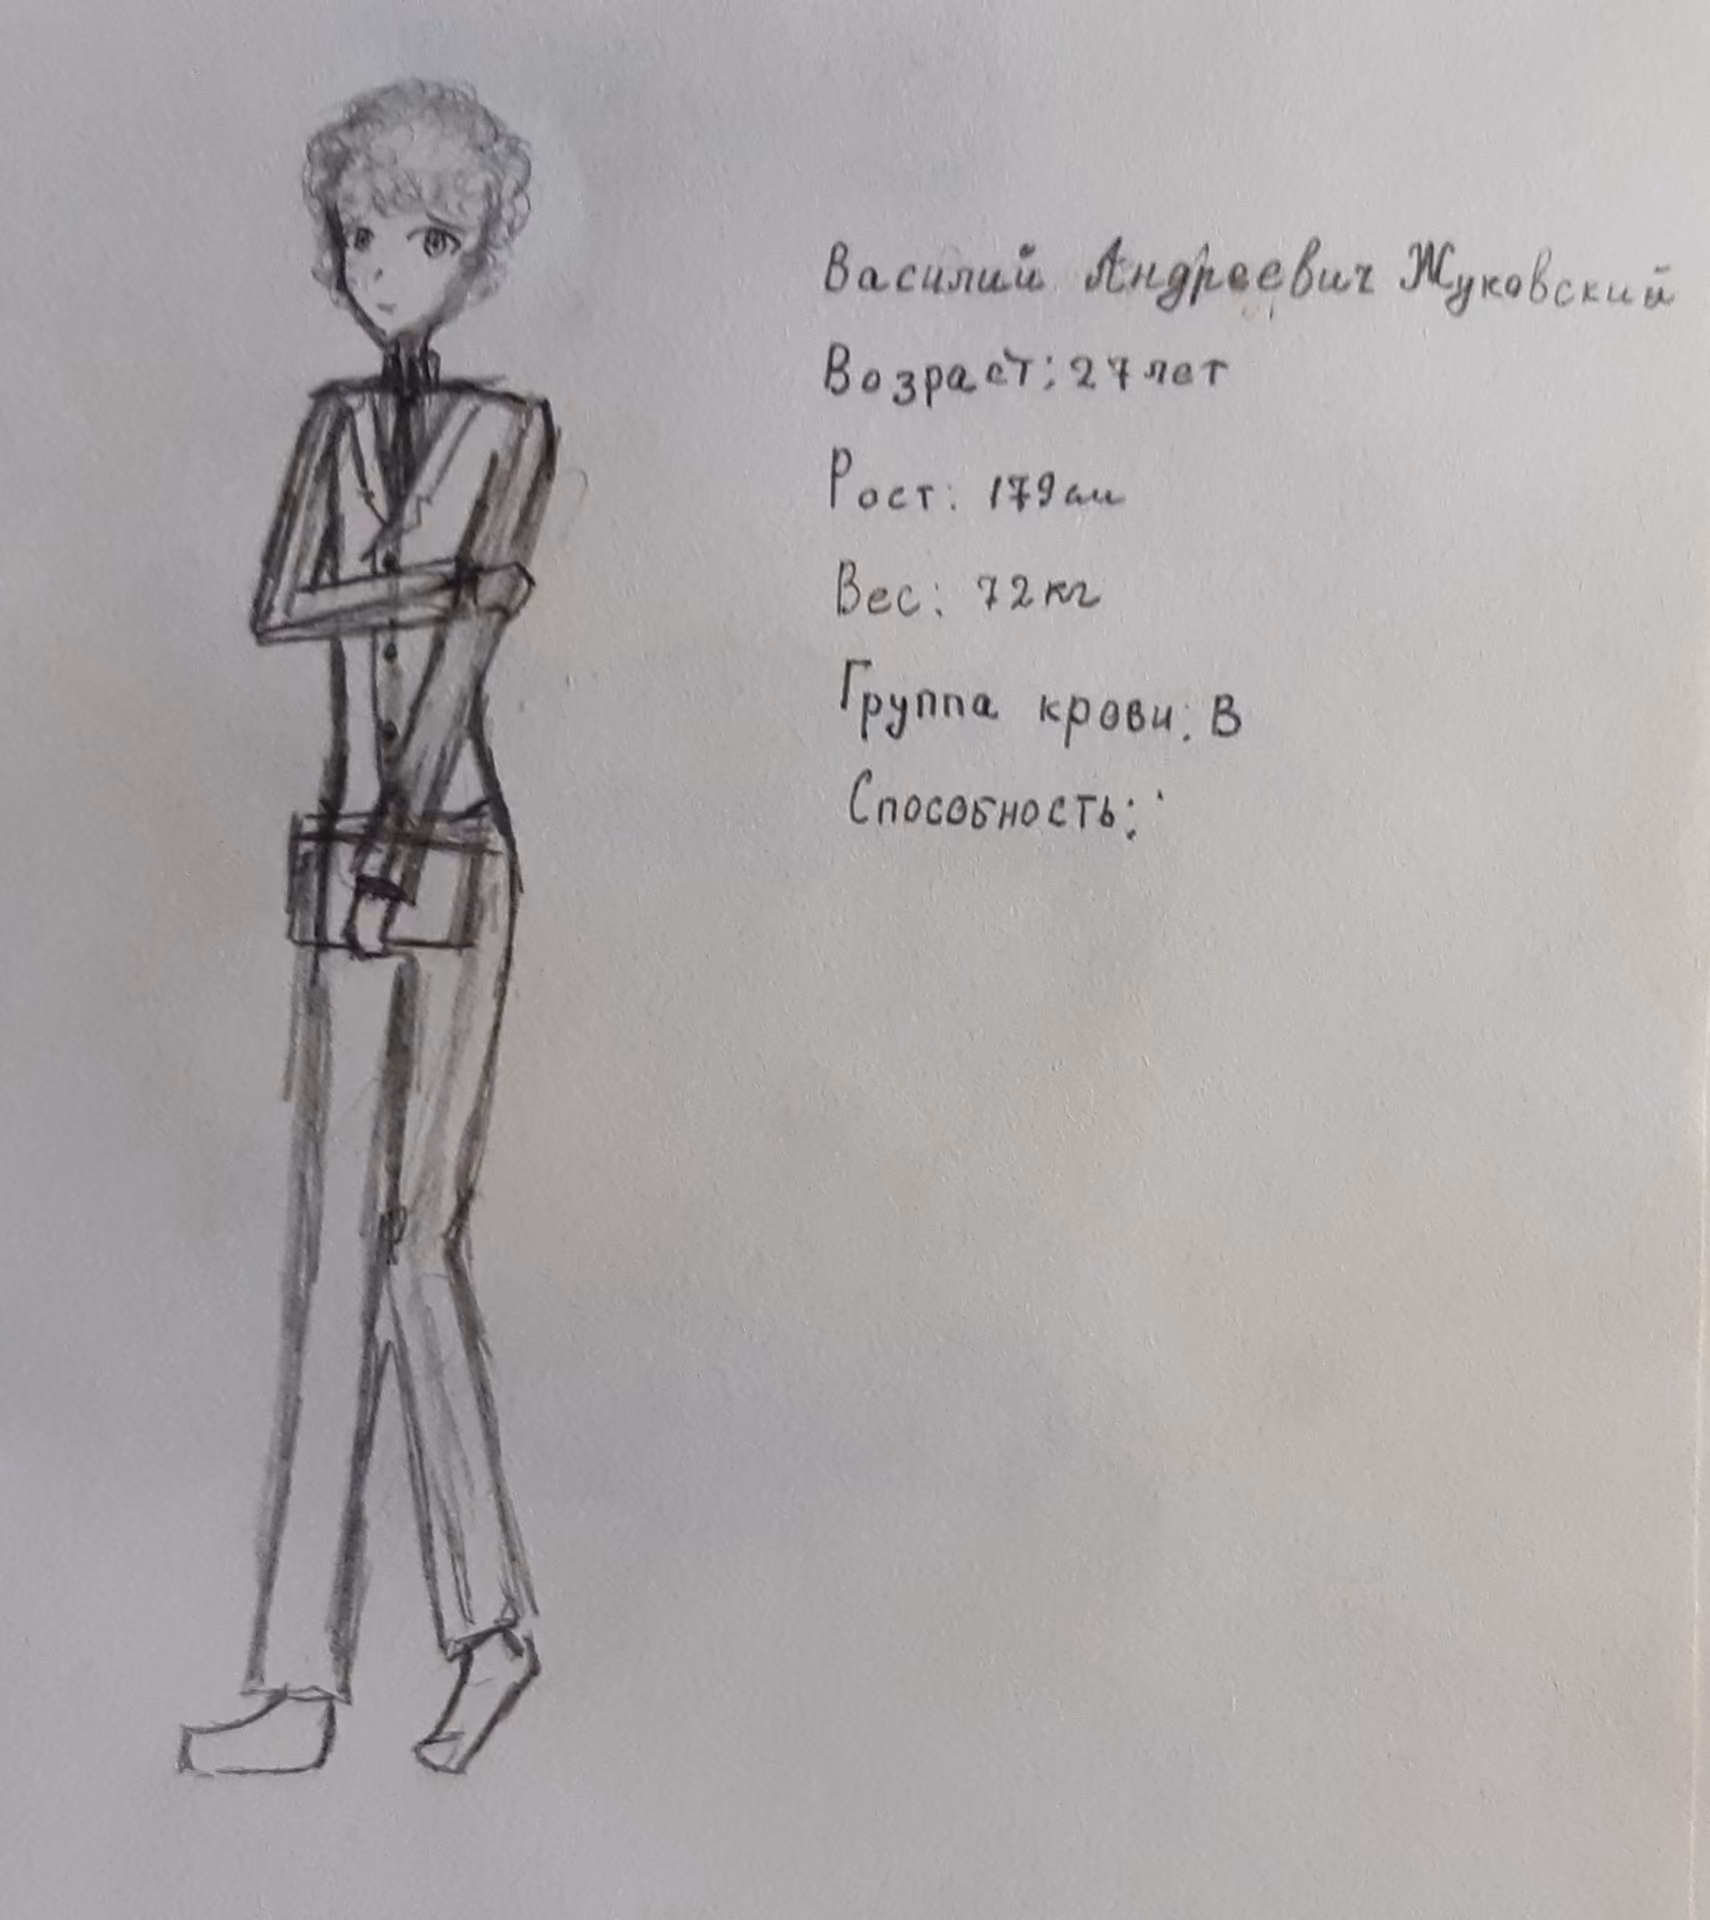 Василий Андреевич Жуковский
Возраст: 27 лет
Рост: 179 см
Вес: 72 кг
Группа крови: В
Способность: